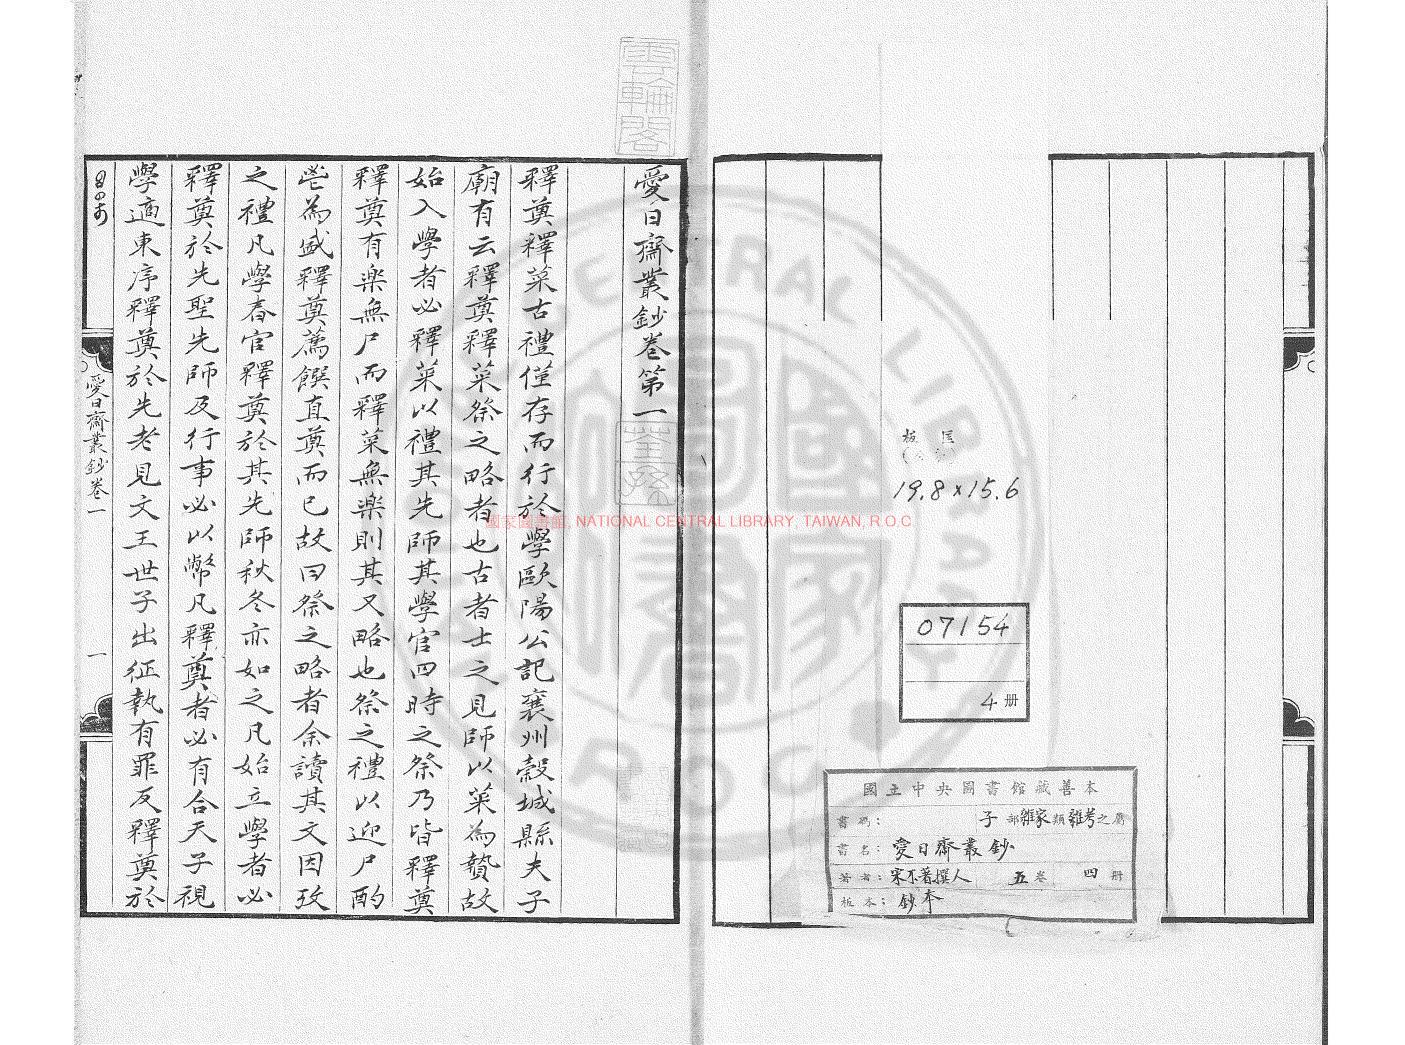 板匡
19.8×15.6
07154
4册
國立中央圖書館藏善本
書碼： 子部雜家類雜考之屬
書名：愛日齋叢鈔
著者：宋不著撰人 五卷 四册
板本：鈔本
雲輪閣
愛日齋叢鈔卷第一
荃孫
釋奠釋菜古禮僅存而行於學歐陽公記襄州穀城縣夫子
廟有云釋奠釋菜祭之略者也古者士之見師以菜為贄故
始入學者必釋菜以禮其先師其學官四時之祭乃皆釋奠
釋奠有楽無尸而釋菜無楽則其又略也祭之禮以迎尸酌
鬯為盛釋奠薦饌直奠而已故曰祭之略者余讀其文因攷
之禮凡學春官釋奠於其先師秋冬亦如之凡始立學者必
釋奠於先聖先師及行事必以幣凡釋奠者必有合天子視
學適東序釋奠於先老見文王世子出征執有罪反釋奠於
愛日齋叢鈔卷一
一
國家圖書館, NATIONAL CENTRAL LIBRARY, TAIWAN, R.O.C